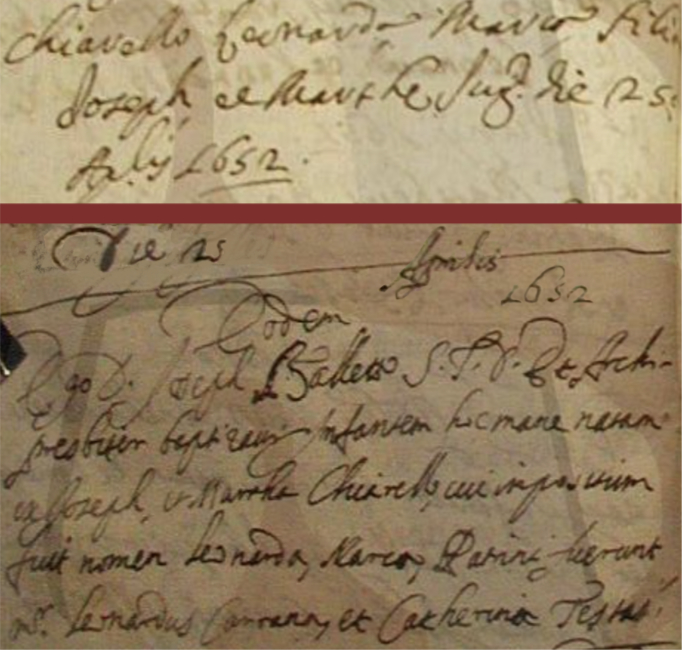 Chiavello Leonarda Marco fili
Joseph et Marthe Jug. die 25
Aplis 1652.
Die 25 Aprilis
1652
Eodem
Ego D. Joseph Balletto S. T. D. et Archi-
presbiter baptizavi Infantem hic mane natam
ex Joseph, et Martha Chiarello, cui impositum
fuit nomen Leonarda, Marca, Patrini fuerunt
mr. Leonardus Carrann, et Catherina Testai